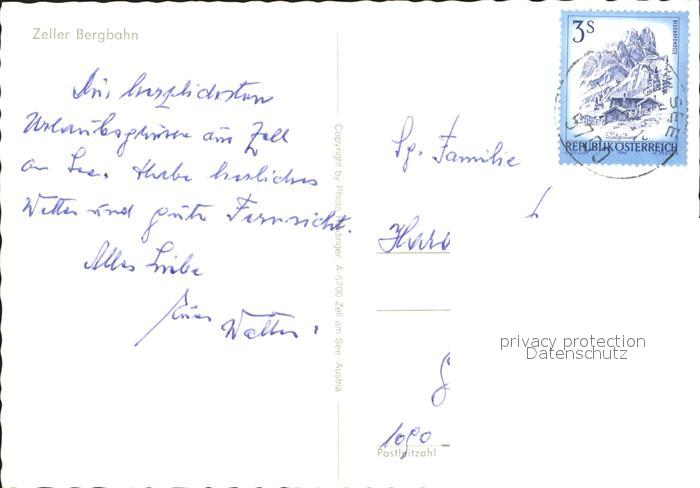 Zeller Bergbahn
3S
REPUBLIK ÖSTERREICH
Die herzlichsten
Urlaubsgrüsse aus Zell
am See. Habe herrliches
Wetter und gute Fernsicht.
Alles Liebe
Euer Walter.
Copyright by Photo A-5700 Zell am See Austria
Sg. Familie
1090
Postleitzahl
5700
SEE
privacy protection
Datenschutz